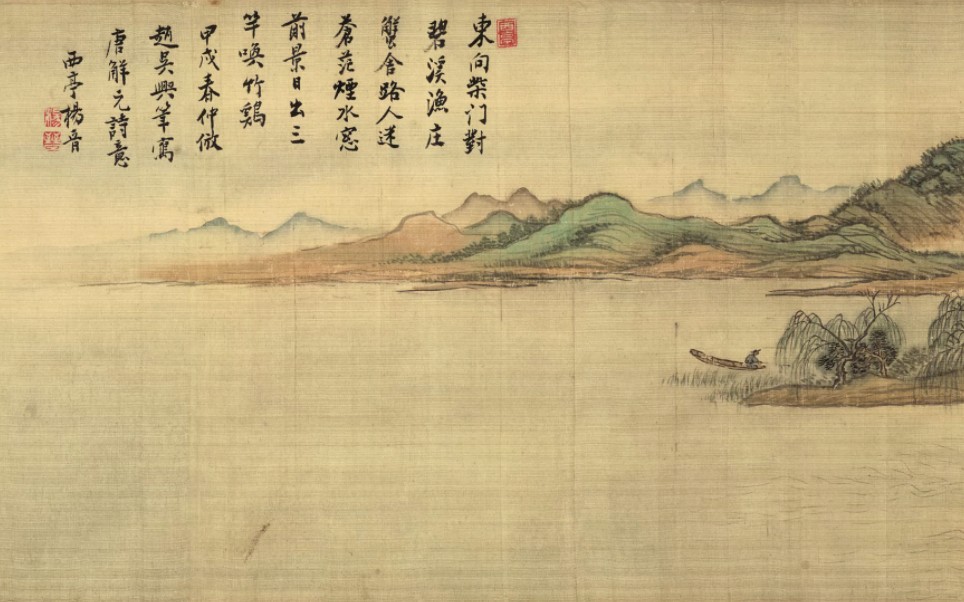 東向柴门對
碧溪漁庄
蟹舍路人迷
蒼茫煙水窓
前景日出三
竿喚竹鷄
甲戌春仲倣
趙吳興筆寫
唐解元詩意
西亭楊晉